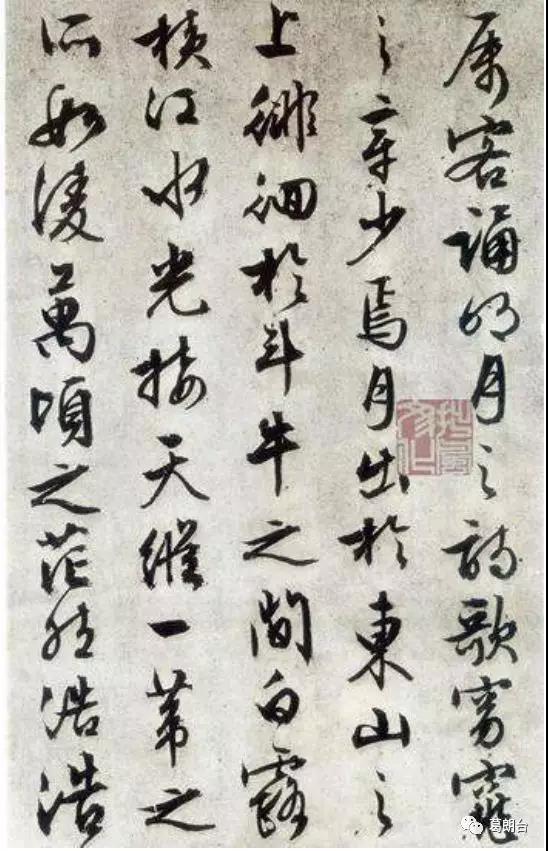 属客誦明月之詩歌窈窕
之章少焉月出於東山之
上徘徊於斗牛之間白露
横江水光接天縱一葦之
所如淩萬頃之茫然浩浩
葛朗台